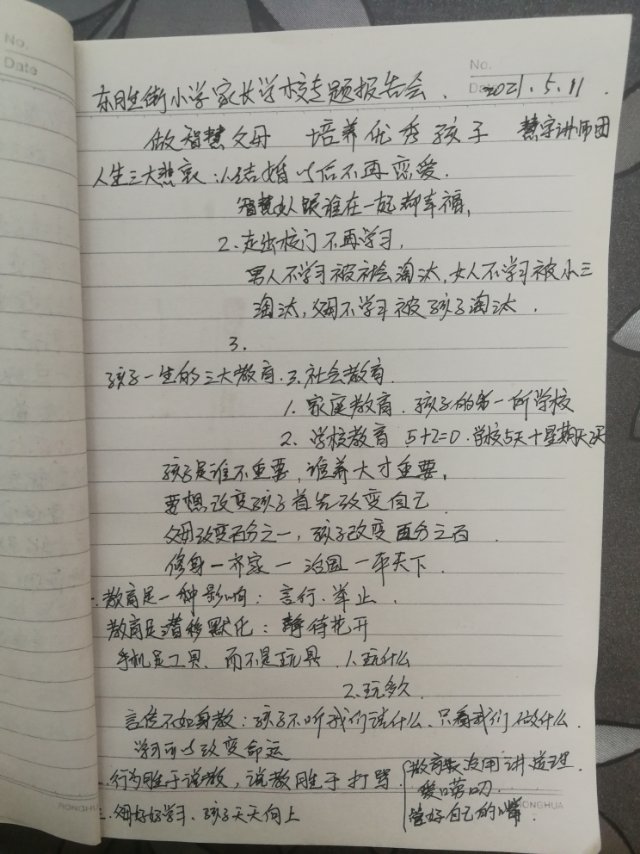 No.
Date
No.
东胜街小学家长学校专题报告会. Date 2021.5.11.
做智慧父母 培养优秀孩子 慧宇讲师团
人生三大悲哀:1.结婚以后不再恋爱.
智慧女人跟谁在一起都幸福,
2.走出校门不再学习,
男人不学习被社会淘汰,女人不学习被小三
淘汰,父母不学习被孩子淘汰.
3.
孩子一生的三大教育.3.社会教育.
1.家庭教育.孩子的第一所学校
2.学校教育 5+2=0.学校5天+星期天2天
孩子是谁不重要,谁养大才重要,
要想改变孩子首先改变自己.
父母改变百分之一,孩子改变百分之百
修身一齐家一治国一平天下.
一.教育是一种影响:言行.举止.
教育是潜移默化:静待花开
手机是工具,而不是玩具.1.玩什么
2.玩多久
言传不如身教:孩子不听我们说什么.只看我们做什么.
学习可以改变命运
二.行为胜于说教,说教胜于打骂.
教育最没用讲道理.
管好自己的嘴.
三.父母好好学习.孩子天天向上
RONGHUA